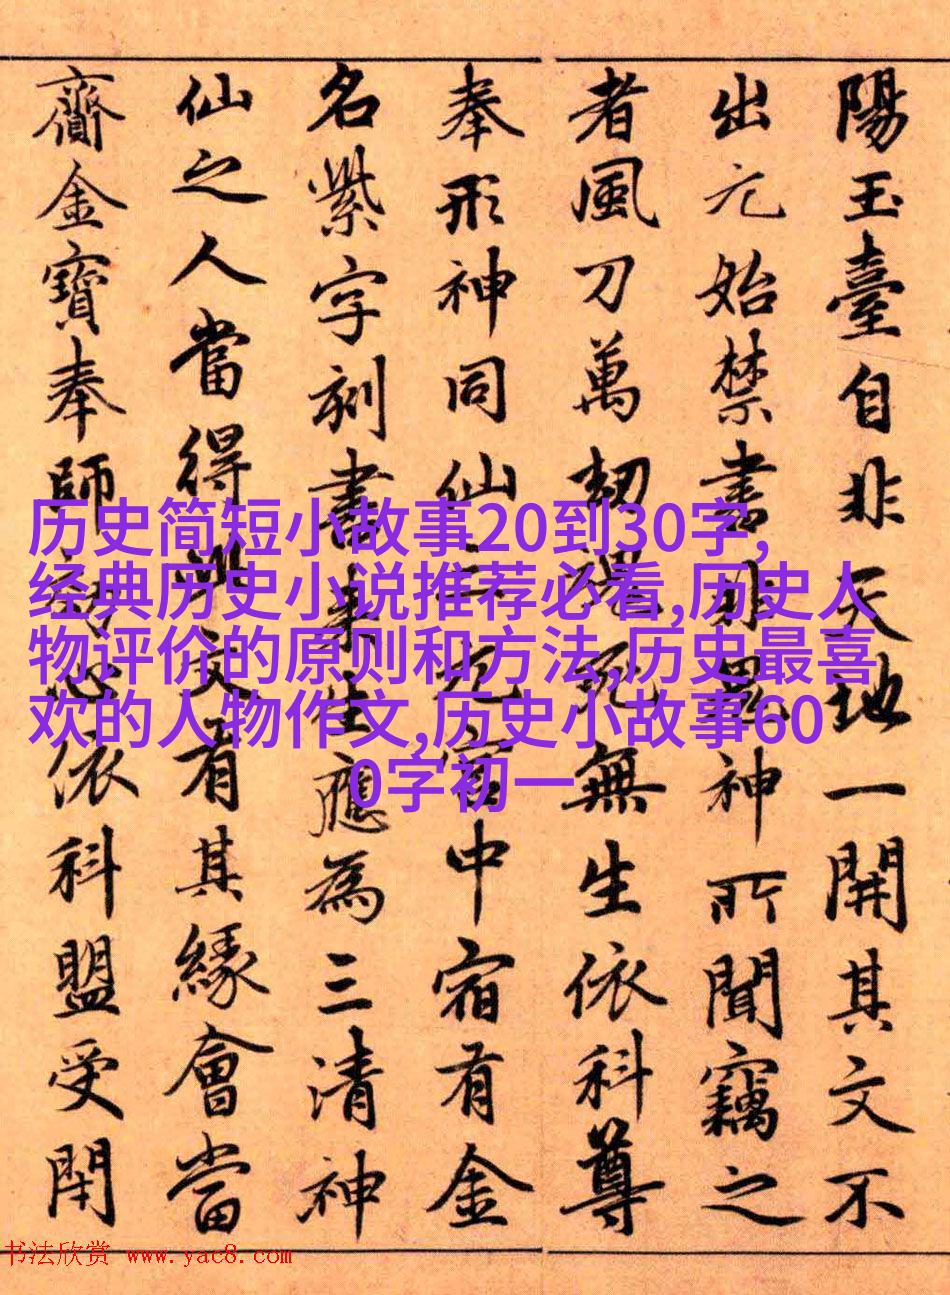 陽玉臺自非天地一開其文不
出元始禁書非鬼神所聞竊之
者風刀萬劫死無生依科尊
奉形神同仙宮中宿有金
名紫字刻書來生應為三清神
仙之人當得此文有其緣會當
齎金寶奉師心依科盟受閇
历史简短小故事20到30字,
经典历史小说推荐必看,历史人
物评价的原则和方法,历史最喜
欢的人物作文,历史小故事60
0字初一
书法欣赏 www.yac8.com